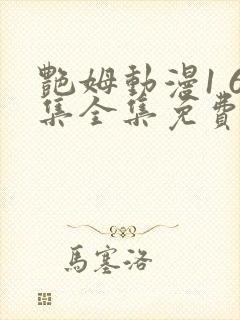 艷姆動漫1 6
集全集免費
馬塞洛